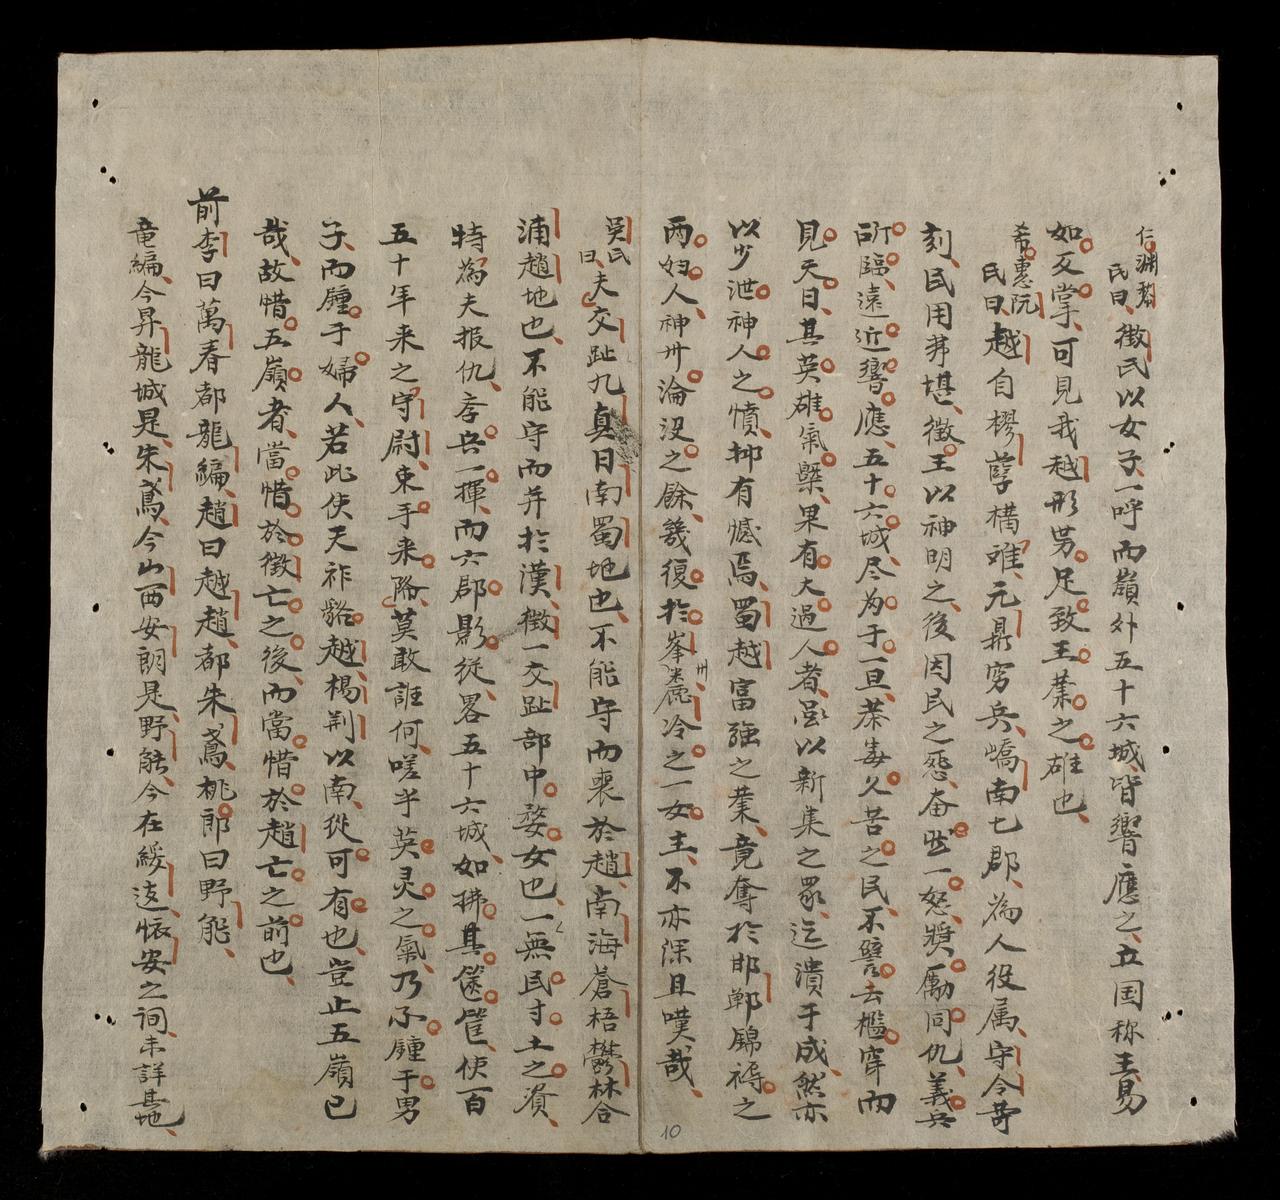 仁淵黎
氏曰徴氏以女子一呼而嶺外五十六城皆響應之立国称王易
如反掌可見我越形势足致王業之雄也
希惠阮
氏曰越自樛孽構难元鼎穷兵嶠南七郡為人役属守令苛
刻民用弗堪徴王以神明之後因民之怨奋然一怒獎励同仇義兵
所臨遠近響應五十六城尽为于一旦荼毒久苦之民不啻去檻穽而
見天日其英雄氣槩果有大過人者虽以新集之眾迄潰于成然亦
以少泄神人之憤抑有憾焉蜀越富強之業竟奪於邯鄲錦裯之
两妇人神州淪没之餘㡬復於峯州麊冷之一女主不亦深且嘆哉
吴氏
曰夫交趾九真日南蜀地也不能守而喪於趙南海蒼梧鬱林合
浦趙地也不能守而并於漢徴一交趾部中婺女也一無民寸土之資
特為夫报仇孝兵一揮而六郡影從畧五十六城如拂其篋筐使百
五十年来之守尉束手来降莫敢誰何嗟乎英灵之氣乃不鍾于男
子而鍾于婦人若此使天祚貉越楊荆以南從可有也豈止五嶺已
哉故惜五嶺者當惜於徴亡之後而當惜於趙亡之前也
前李曰萬春都龍編趙曰越趙都朱鳶桃郎曰野能
竜編今昇龍城是朱鳶今山西安朗是野能今在綏逺懷安之词未詳其地
10